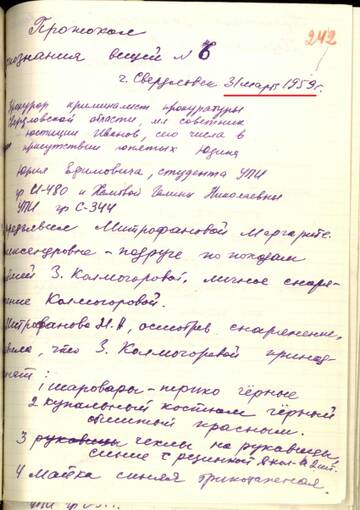 242
Протокол
опознания вещей № 6
г. Свердловск 31 марта 1959 г.
Прокурор криминалист прокуратуры
Свердловской области, мл советник
юстиции Иванов, сего числа в
присутствии понятых Юдина
Юрия Ефимовича, студента УПИ
гр И-480 и Галины Николаевны
УПИ гр С-344
Митрофановой Маргарите
Александровне - подруге по походам
З. Колмогоровой, личное снаря-
жение Колмогоровой.
Митрофанова М.А, осмотрев снаряжение,
что З. Колмогоровой принад-
лежат:
1 шаровары - трико чёрные
2 купальный костюм чёрный
обшитый красным.
3 рукавицы чехлы на рукавицы,
синие с резинкой 2 шт.
4 Майка синяя трикотажная.